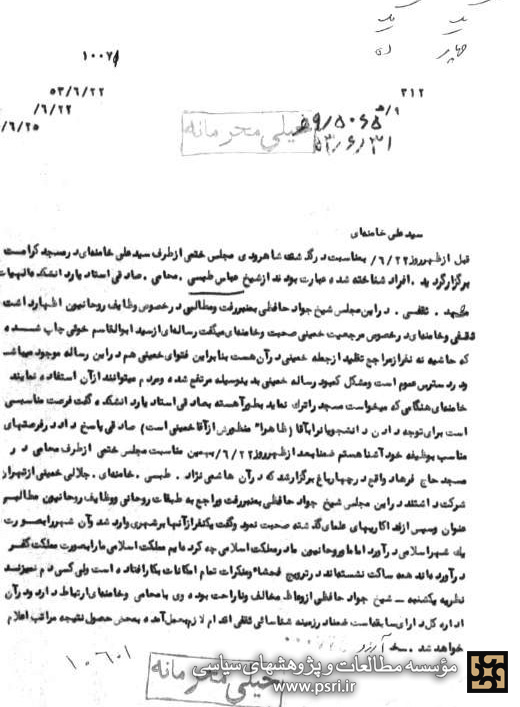 یک یک
چاپ
۱۰۰۷۱
۵۳/۶/۲۲
۳۱۲
/۶/۲۲
۹/ه
/۶/۲۵
۵۳/۶/۳۱
خیلی محرمانه
سید علی خامنه‌ای
قبل از ظهر روز ۶/۲۲/ بمناسبت درگذشت شاهرودی مجلس ختمی از طرف سید علی خامنه‌ای در مسجد کرامت
برگزار گردید . افراد شناخته شده عبارت بودند از شیخ عباس طبسی . محامی . صادقی استادیار دانشکده الهیات
مشهد . ثقفی . در این مجلس شیخ جواد حافظی بمنبر رفت ومطالبی در خصوص وظایف روحانیون اظهار داشت
ثقفی وخامنه‌ای در خصوص مرجعیت خمینی صحبت وخامنه‌ای میگفت رساله‌ای از سید ابوالقاسم خوئی چاپ شده
که حاشیه نه نفر از مراجع تقلید از جمله خمینی در آن هست بنابراین فتوای خمینی هم در این رساله موجود میباشد
ودر دسترس عموم است ومشکل کمبود رساله خمینی بدینوسیله مرتفع شده ومردم میتوانند از آن استفاده نمایند
خامنه‌ای هنگامی که میخواست مسجد را ترک نماید بطور آهسته بصادقی استادیار دانشکده گفت فرصت مناسبی
است برای توجه دادن دانشجویان بآقا (ظاهرا" منظورش از آقا خمینی است) صادقی پاسخ داد در فرصتهای
مناسب بوظیفه خود آشنا هستم ضمنا بعد از ظهر روز ۶/۲۲/ بهمین مناسبت مجلس ختمی از طرف محامی در
مسجد حاج فرهاد واقع در چهارباغ برگزار شد که در آن هاشمی نژاد . طبسی . خامنه‌ای . جلالی خمینی از تهران
شرکت داشتند در این مجلس شیخ جواد حافظی بمنبر رفت وراجع به طبقات روحانی ووظایف روحانیون مطالبی
عنوان وسپس از فداکاریهای علمای گذشته صحبت نمود وگفت یکنفر از آنها بر شهری وارد شد وآن شهر را بصورت
یک شهر اسلامی درآورد اما ما روحانیون ما در مملکت اسلامی چه کرده ایم مملکت اسلامی ما را بصورت مملکت کفر
درآورده اند همه ساکت نشسته‌اند در ترویج فحشاء ومنکرات تمام امکانات بکار افتاده است ولی کسی دم نمیزند
نظریه یکشنبه – شیخ جواد حافظی از وعاظ مخالف وناراحت بوده وی با محامی وخامنه‌ای ارتباط دارد ودر آن
اداره کل دارای سابقه است ضمنا در زمینه شناسائی ثقفی اقدام لازم بعمل آمده بمحض حصول نتیجه مراتب اعلام
خواهد شد .
۱۰۶۰۱
خیلی محرمانه
مؤسسه مطالعات و پژوهشهای سیاسی
www.psri.ir